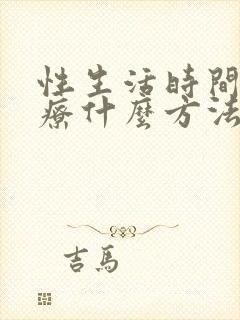 性生活時間
療什麼方法
吉馬